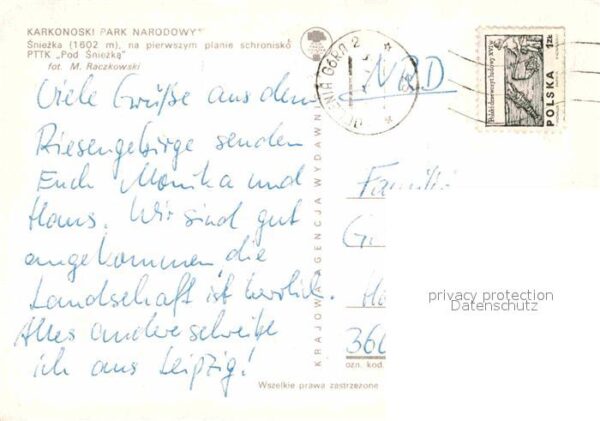 KARKONOSKI PARK NARODOWY
Śnieżka (1602 m), na pierwszym planie schronisko
PTTK „Pod Śnieżką"
fot. M. Raczkowski
Viele Grüße aus dem
Riesengebirge senden
Euch Monika und
Hans. Wir sind gut
angekommen, die
Landschaft ist herrlich.
Alles andere schreibe
ich aus Leipzig!
KRAJOWA AGENCJA WYDAWN
JELENIA GÓRA 2
NRD
POLSKA
1zł
Polski drzeworyt ludowy XVI w.
Famili
G
H
360
ozn. kod.
Wszelkie prawa zastrzeżone
privacy protection
Datenschutz